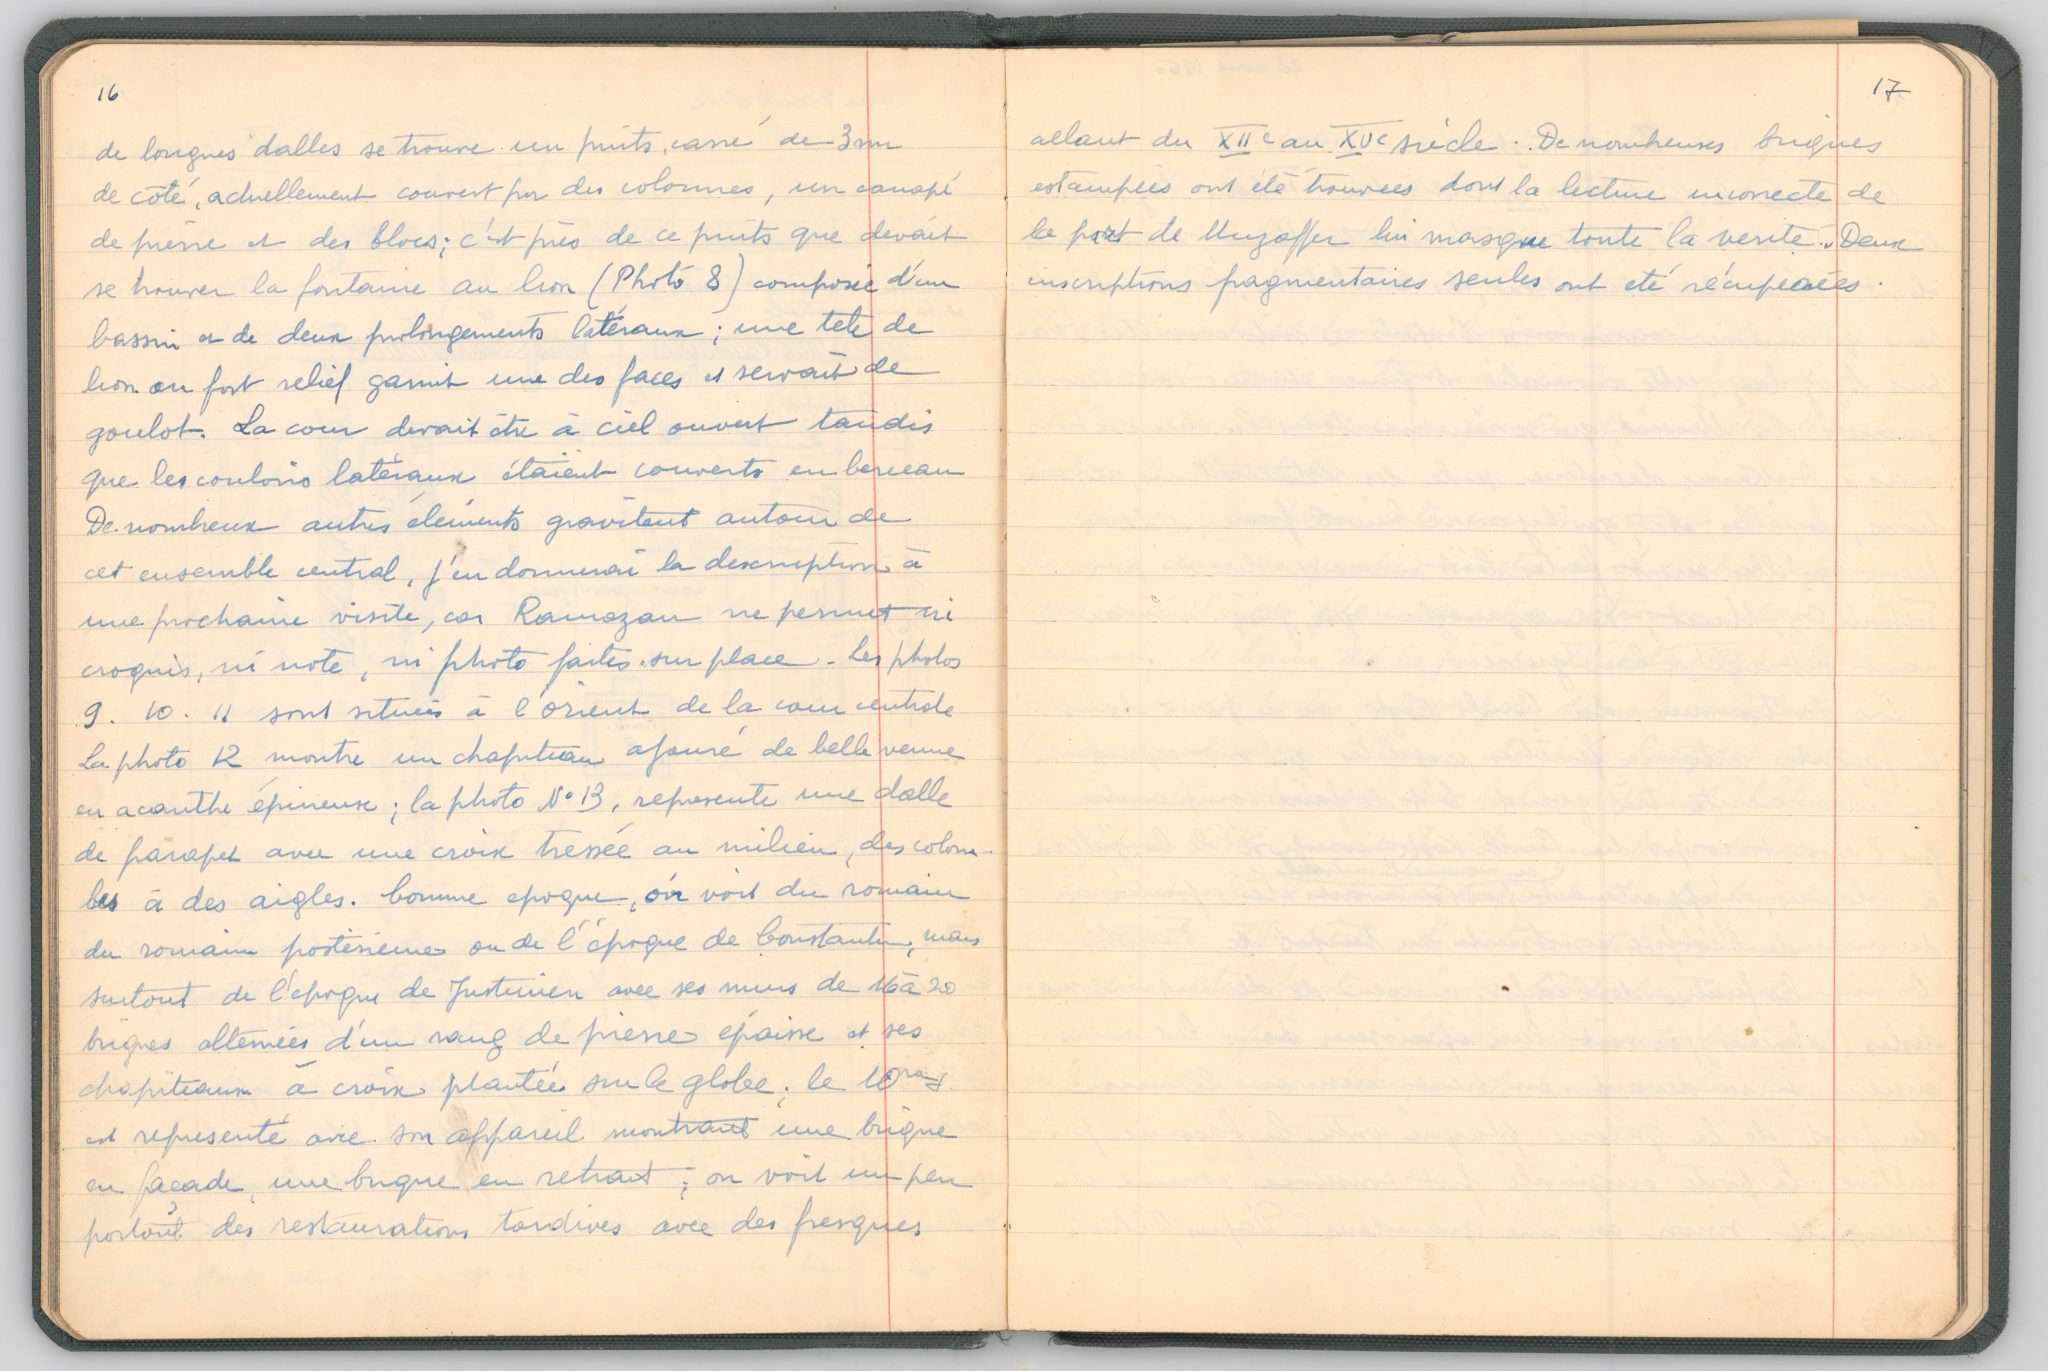 16
de longues dalles se trouve un puits, carré de 3m
de côté, actuellement couvert par des colonnes, un canapé
de pierre et des blocs; c'est près de ce puits que devait
se trouver la fontaine au lion (Photo 8) composée d'un
bassin et de deux prolongements latéraux; une tête de
lion en fort relief garnit une des faces et servait de
goulot. La cour devait être à ciel ouvert tandis
que les couloirs latéraux étaient couverts en berceau
De nombreux autres éléments gravitent autour de
cet ensemble central, j'en donnerai la description à
une prochaine visite, car Ramazan ne permet ni
croquis, ni note, ni photo faites sur place - Les photos
9. 10. 11 sont situées à l'orient de la cour centrale
La photo 12 montre un chapiteau ajouré de belle venue
en acanthe épineuse; la photo No 13, represente une dalle
de parapet avec une croix tressée au milieu, des colom-
bes à des aigles. Comme epoque, on voit du romain
du romain postérieur ou de l'époque de Constantin, mais
surtout de l'epoque de Justinien avec ses murs de 16 à 20
briques alternées d'un rang de pierre épaisse et ses
chapiteaux à croix plantée sur le globe; le 10
est representé avec son appareil montrant une brique
en façade, une brique en retrait; on voit un peu
partout des restaurations tardives avec des fresques
17
allant du XIIe au XVe siècle. De nombreuses briques
estampées ont été trouvées dont la lecture incorrecte de
la part de Muzaffer lui masque toute la verité. Deux
inscriptions fragmentaires seules ont eté récupérées.